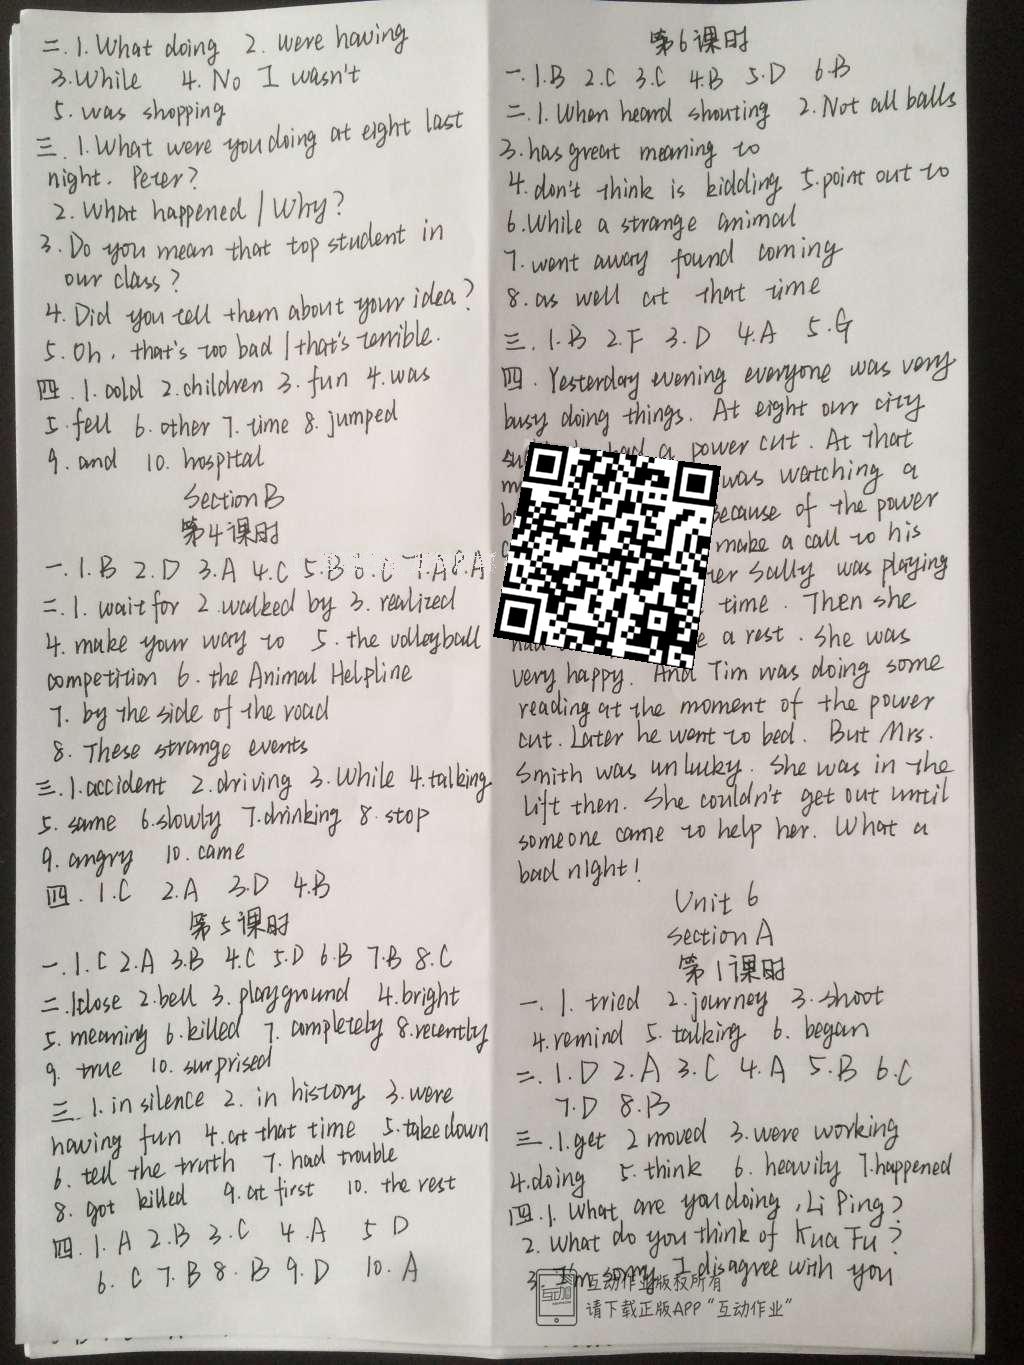 二.1.What doing 2.were having
3.While 4.No I wasn't
5.was shopping
三.1.What were you doing at eight last
night. Peter?
2.What happened / Why?
3.Do you mean that top student in
our class?
4.Did you tell them about your idea?
5.Oh, that's too bad / that's terrible.
四.1.cold 2.children 3.fun 4.was
5.fell 6.other 7.time 8.jumped
9.and 10.hospital
Section B
第4课时
一.1.B 2.D 3.A 4.C 5.B 6.C 7.A 8.A
二.1.wait for 2.walked by 3.realized
4.make your way to 5.the volleyball
competition 6.the Animal Helpline
7.by the side of the road
8.These strange events
三.1.accident 2.driving 3.While 4.talking
5.same 6.slowly 7.drinking 8.stop
9.angry 10.came
四.1.C 2.A 3.D 4.B
第5课时
一.1.C 2.A 3.B 4.C 5.D 6.B 7.B 8.C
二.1.close 2.bell 3.playground 4.bright
5.meaning 6.killed 7.completely 8.recently
9.true 10.surprised
三.1.in silence 2.in history 3.were
having fun 4.at that time 5.take down
6.tell the truth 7.had trouble
8.got killed 9.at first 10.the rest
四.1.A 2.B 3.C 4.A 5 D
6.C 7.B 8.B 9.D 10.A
第6课时
一.1.B 2.C 3.C 4.B 5.D 6.B
二.1.When heard shouting 2.Not all balls
3.has great meaning to
4.don't think is kidding 5.point out to
6.While a strange animal
7.went away found coming
8.as well at that time
三.1.B 2.F 3.D 4.A 5.G
四.Yesterday evening everyone was very
busy doing things. At eight our city
had a power cut. At that
was watching a
Because of the power
make a call to his
Sally was playing
time. Then she
had a rest. She was
very happy. And Tim was doing some
reading at the moment of the power
cut. Later he went to bed. But Mrs.
Smith was unlucky. She was in the
lift then. She couldn't get out until
someone came to help her. What a
bad night!
Unit 6
Section A
第1课时
一.1.tried 2.journey 3.shoot
4.remind 5.talking 6.began
二.1.D 2.A 3.C 4.A 5.B 6.C
7.D 8.B
三.1.get 2 moved 3.were working
4.doing 5.think 6.heavily 7.happened
四.1.What are you doing, Li Ping?
2.What do you think of Kua Fu?
3.I'm sorry I disagree with you
互动作业版权所有
请下载正版APP“互动作业”